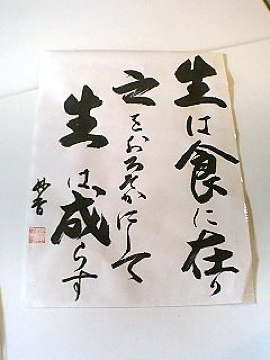 生は食に在り
之をおろそかにして
生は成らす
妙香